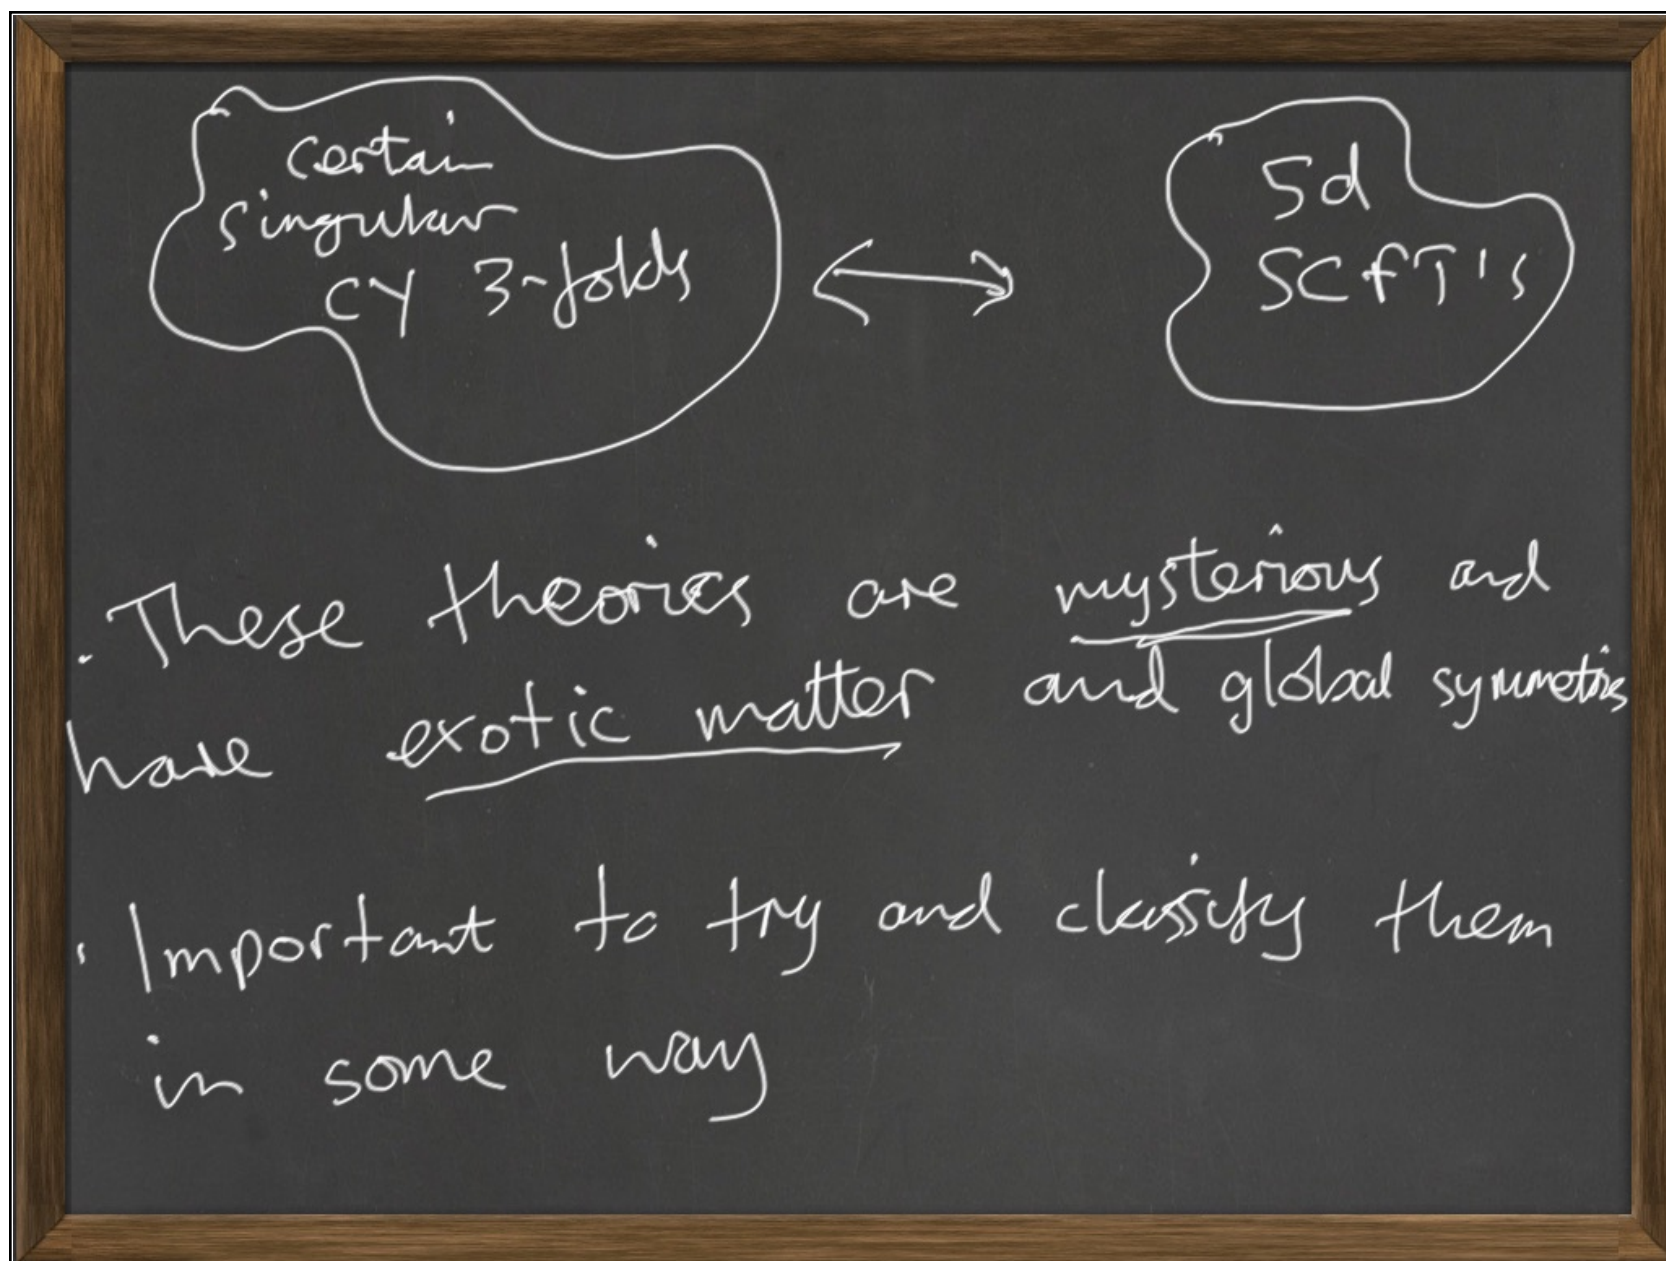 certain
singular
CY 3-folds
5d
SCFT's
• These theories are mysterious and
have exotic matter and global symmetries
• Important to try and classify them
in some way